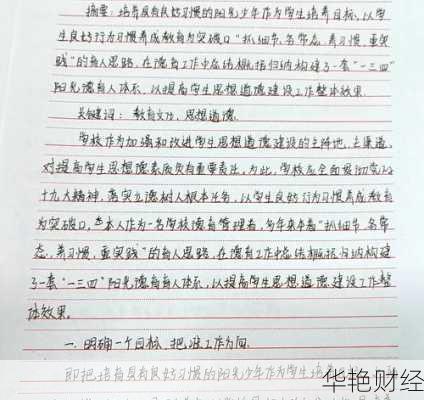 摘要:培养具有良好习惯的阳光少年作为学生培养目标,以学
生良好行为习惯养成教育为突破口"抓细节,名常态,养习惯,重实
践"的育人思路,在德育工作中总结概括归纳构建了一套"一三四"
阳光德育人体系,以提高学生思想道德建设工作整体效果.
关键词:教育文办,思想道德.
学校作为加强和改进学生思想道德建设的主阵地,主渠道,
对提高学生思想德素质负有重要责任,为此,学校应全面贯彻党的
十九大精神,落实立德树人根本任务,以学生良好行为习惯养成教育
为突破口,本人作为一名学校德育管理者,多年来本着"抓细节,名常
态,养习惯,重实践"的育人思路,在德育工作中总结概括归纳构建
了一套"一三四"阳光德育育人体系,以提高学生思想道德建设工作整
体效果.
一.明确一个目标、把准工作方向.
即把培育具有良好习惯的阳光少年作为学生培养
华艳财经